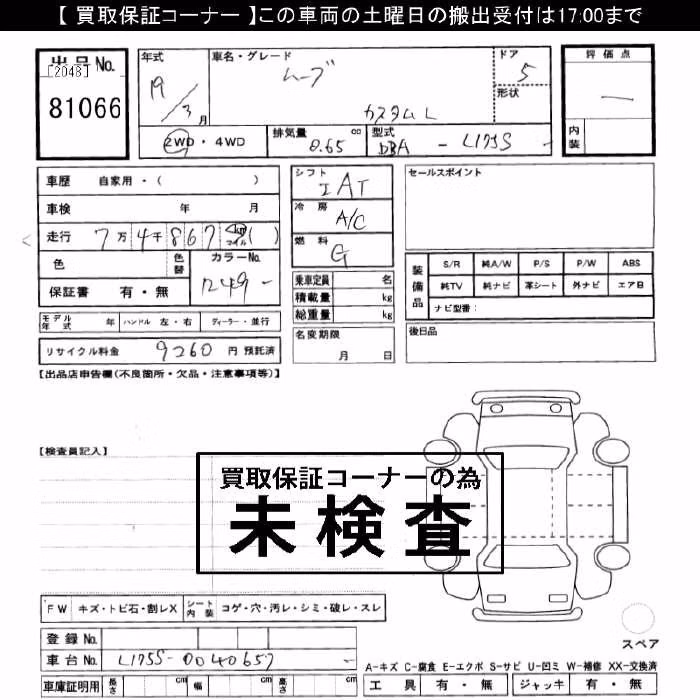 【 買取保証コーナー 】この車両の土曜日の搬出受付は17:00まで
出品No.
[2048]
81066
年式
19/3月
車名・グレード
ムーブ
カスタムL
ドア
5
形状
評価点
—
内装
2WD・4WD
排気量
0.65
cc
型式
DBA - L175S -
車歴 自家用・( )
車検 年 月
走行 7万4千867 km マイル ( )
色
色替
カラーNo.
保証書 有・無
シフト
IAT
冷房
A/C
燃料
G
乗車定員 名
積載量 kg
総重量 kg
名変期限
月 日
セールスポイント
装備品
S/R 純A/W P/S P/W ABS
純TV 純ナビ 革シート 外ナビ エアB
ナビ型番:
後日品
モデル年式 年 ハンドル 左・右 ディーラー・並行
リサイクル料金 9260 円 預託済
【出品店申告欄(不良箇所・欠品・注意事項等)】
【検査員記入】
買取保証コーナーの為
未検査
FW キズ・トビ石・割レX シート内装 コゲ・穴・汚レ・シミ・破レ・スレ
登録No.
車台No. L175S-0040657 -
車庫証明用 長さ cm 幅 cm 高さ cm
スペア
A-キズ C-腐食 E-エクボ S-サビ U-凹ミ W-補修 XX-交換済
工具 有・無 ジャッキ 有・無